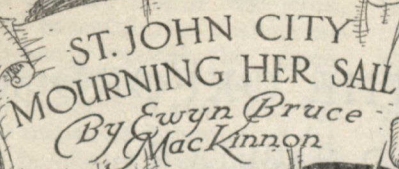 ST. JOHN CITY
MOURNING HER SAIL
By Ewyn Bruce
MacKinnon